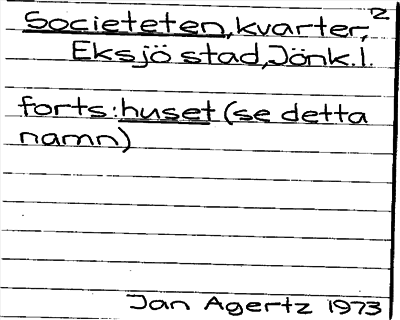 Societeten, kvarter, 2
Eksjö stad, Jönk. l.
forts: huset (se detta
namn)
Jan Agertz 1973